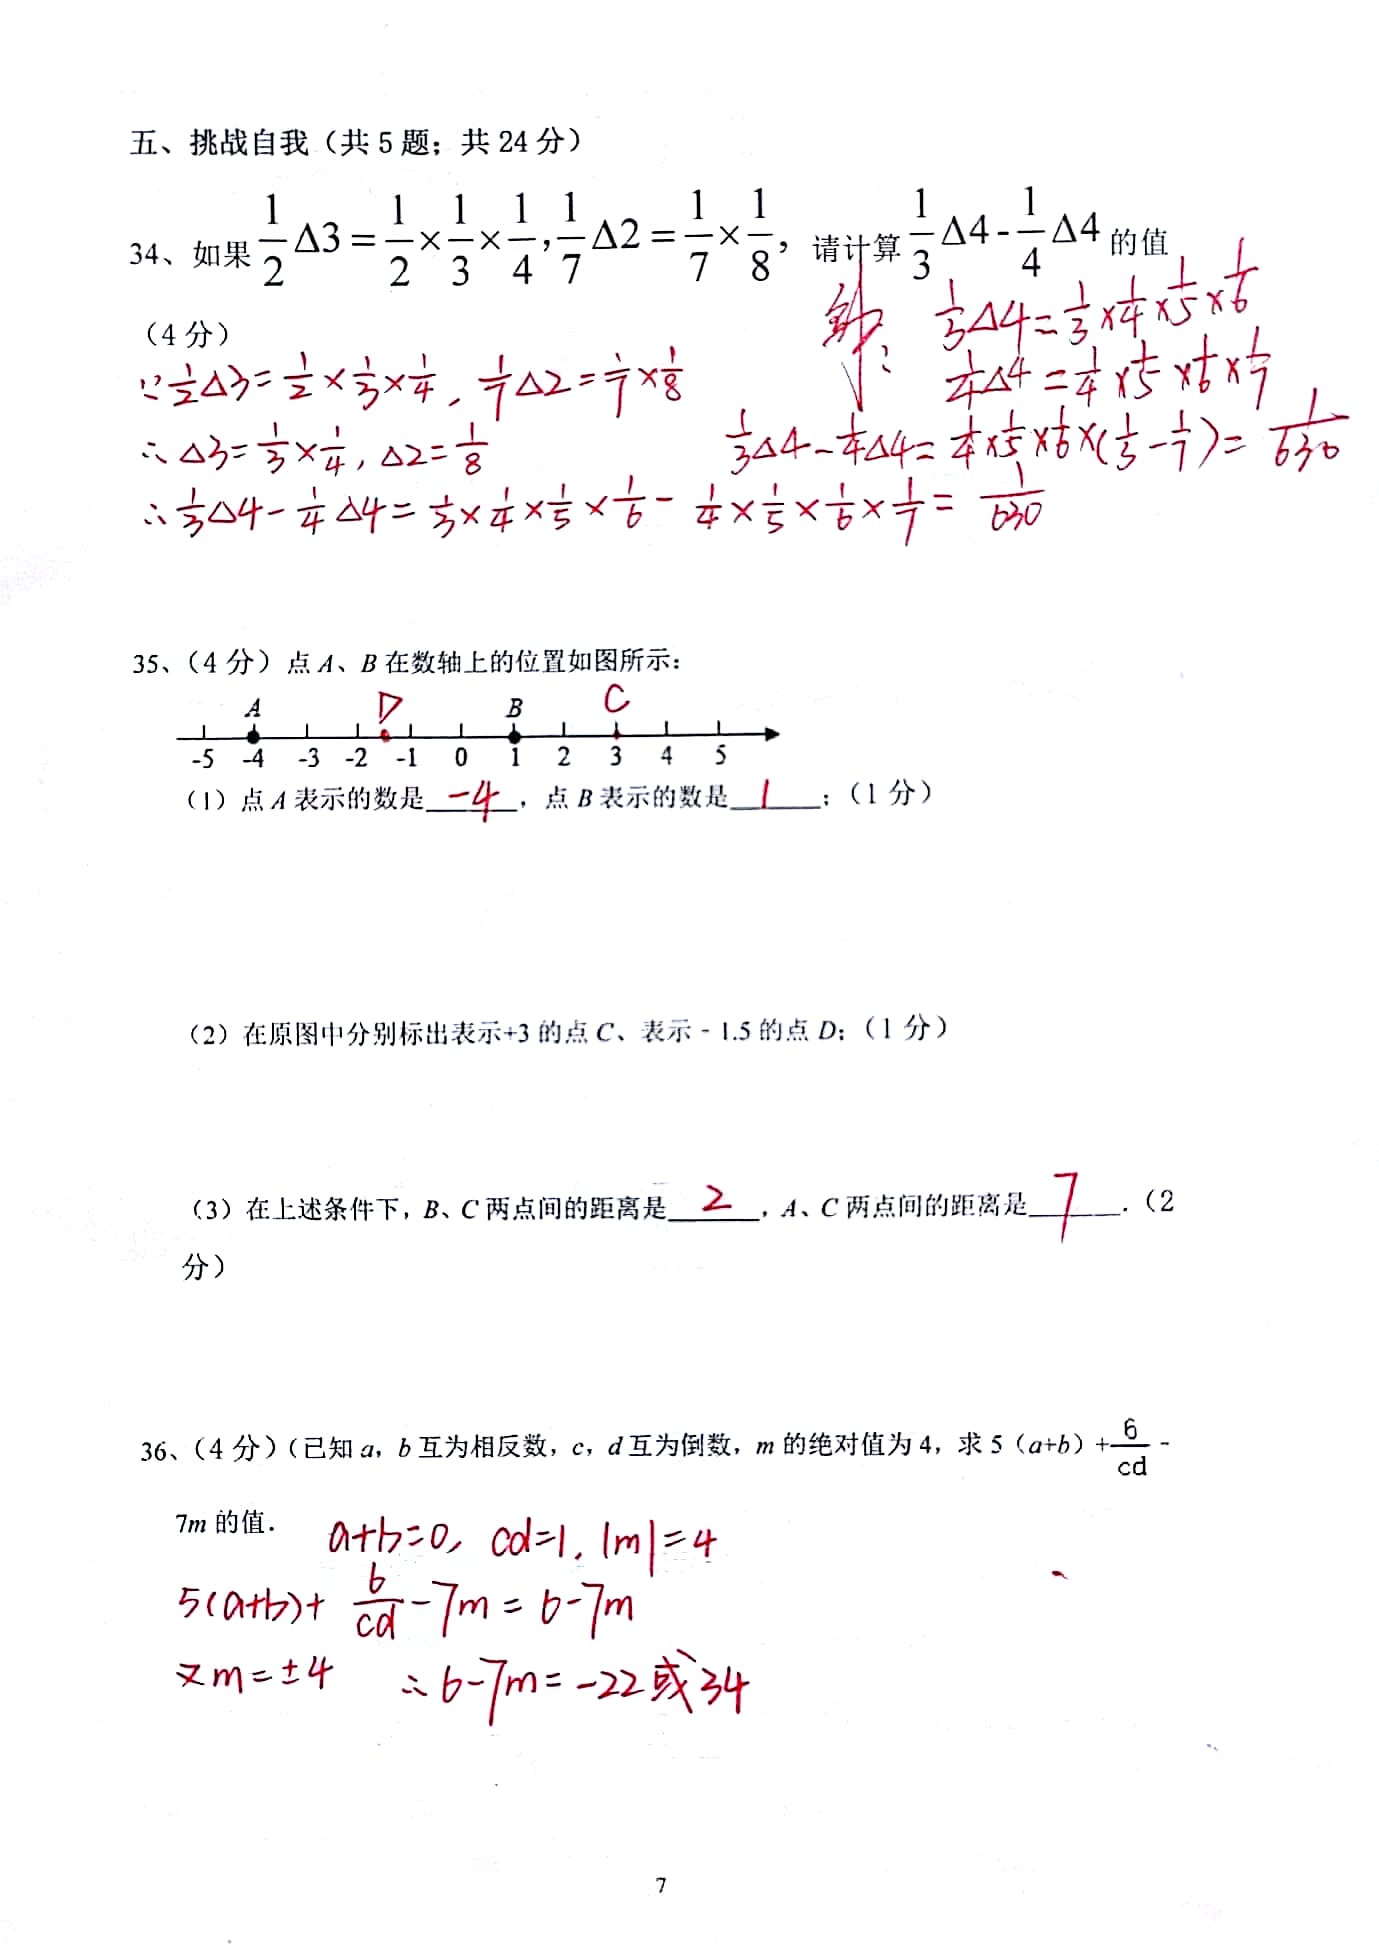 五、挑战自我（共5题；共24分）
34、如果 1/2 Δ3 = 1/2 × 1/3 × 1/4, 1/7 Δ2 = 1/7 × 1/8，请计算 1/3 Δ4 - 1/4 Δ4 的值
（4分）
解： 1/3 Δ4 = 1/3 × 1/4 × 1/5 × 1/6
1/4 Δ4 = 1/4 × 1/5 × 1/6 × 1/7
1/3 Δ4 - 1/4 Δ4 = 1/4 × 1/5 × 1/6 × (1/3 - 1/7) = 1/630
∵ 1/2 Δ3 = 1/2 × 1/3 × 1/4, 1/7 Δ2 = 1/7 × 1/8
∴ Δ3 = 1/3 × 1/4, Δ2 = 1/8
∴ 1/3 Δ4 - 1/4 Δ4 = 1/3 × 1/4 × 1/5 × 1/6 - 1/4 × 1/5 × 1/6 × 1/7 = 1/630
35、（4分）点A、B在数轴上的位置如图所示：
A D B C
-5 -4 -3 -2 -1 0 1 2 3 4 5
（1）点A表示的数是 -4 ，点B表示的数是 1 ；（1分）
（2）在原图中分别标出表示+3的点C、表示﹣1.5的点D；（1分）
（3）在上述条件下，B、C两点间的距离是 2 ，A、C两点间的距离是 7 ．（2
分）
36、（4分）（已知a，b互为相反数，c，d互为倒数，m的绝对值为4，求5（a+b）+ 6/cd -
7m的值．
a+b=0, cd=1, |m|=4
5(a+b)+ 6/cd -7m = 6-7m
又m=±4 ∴6-7m=-22或34
7